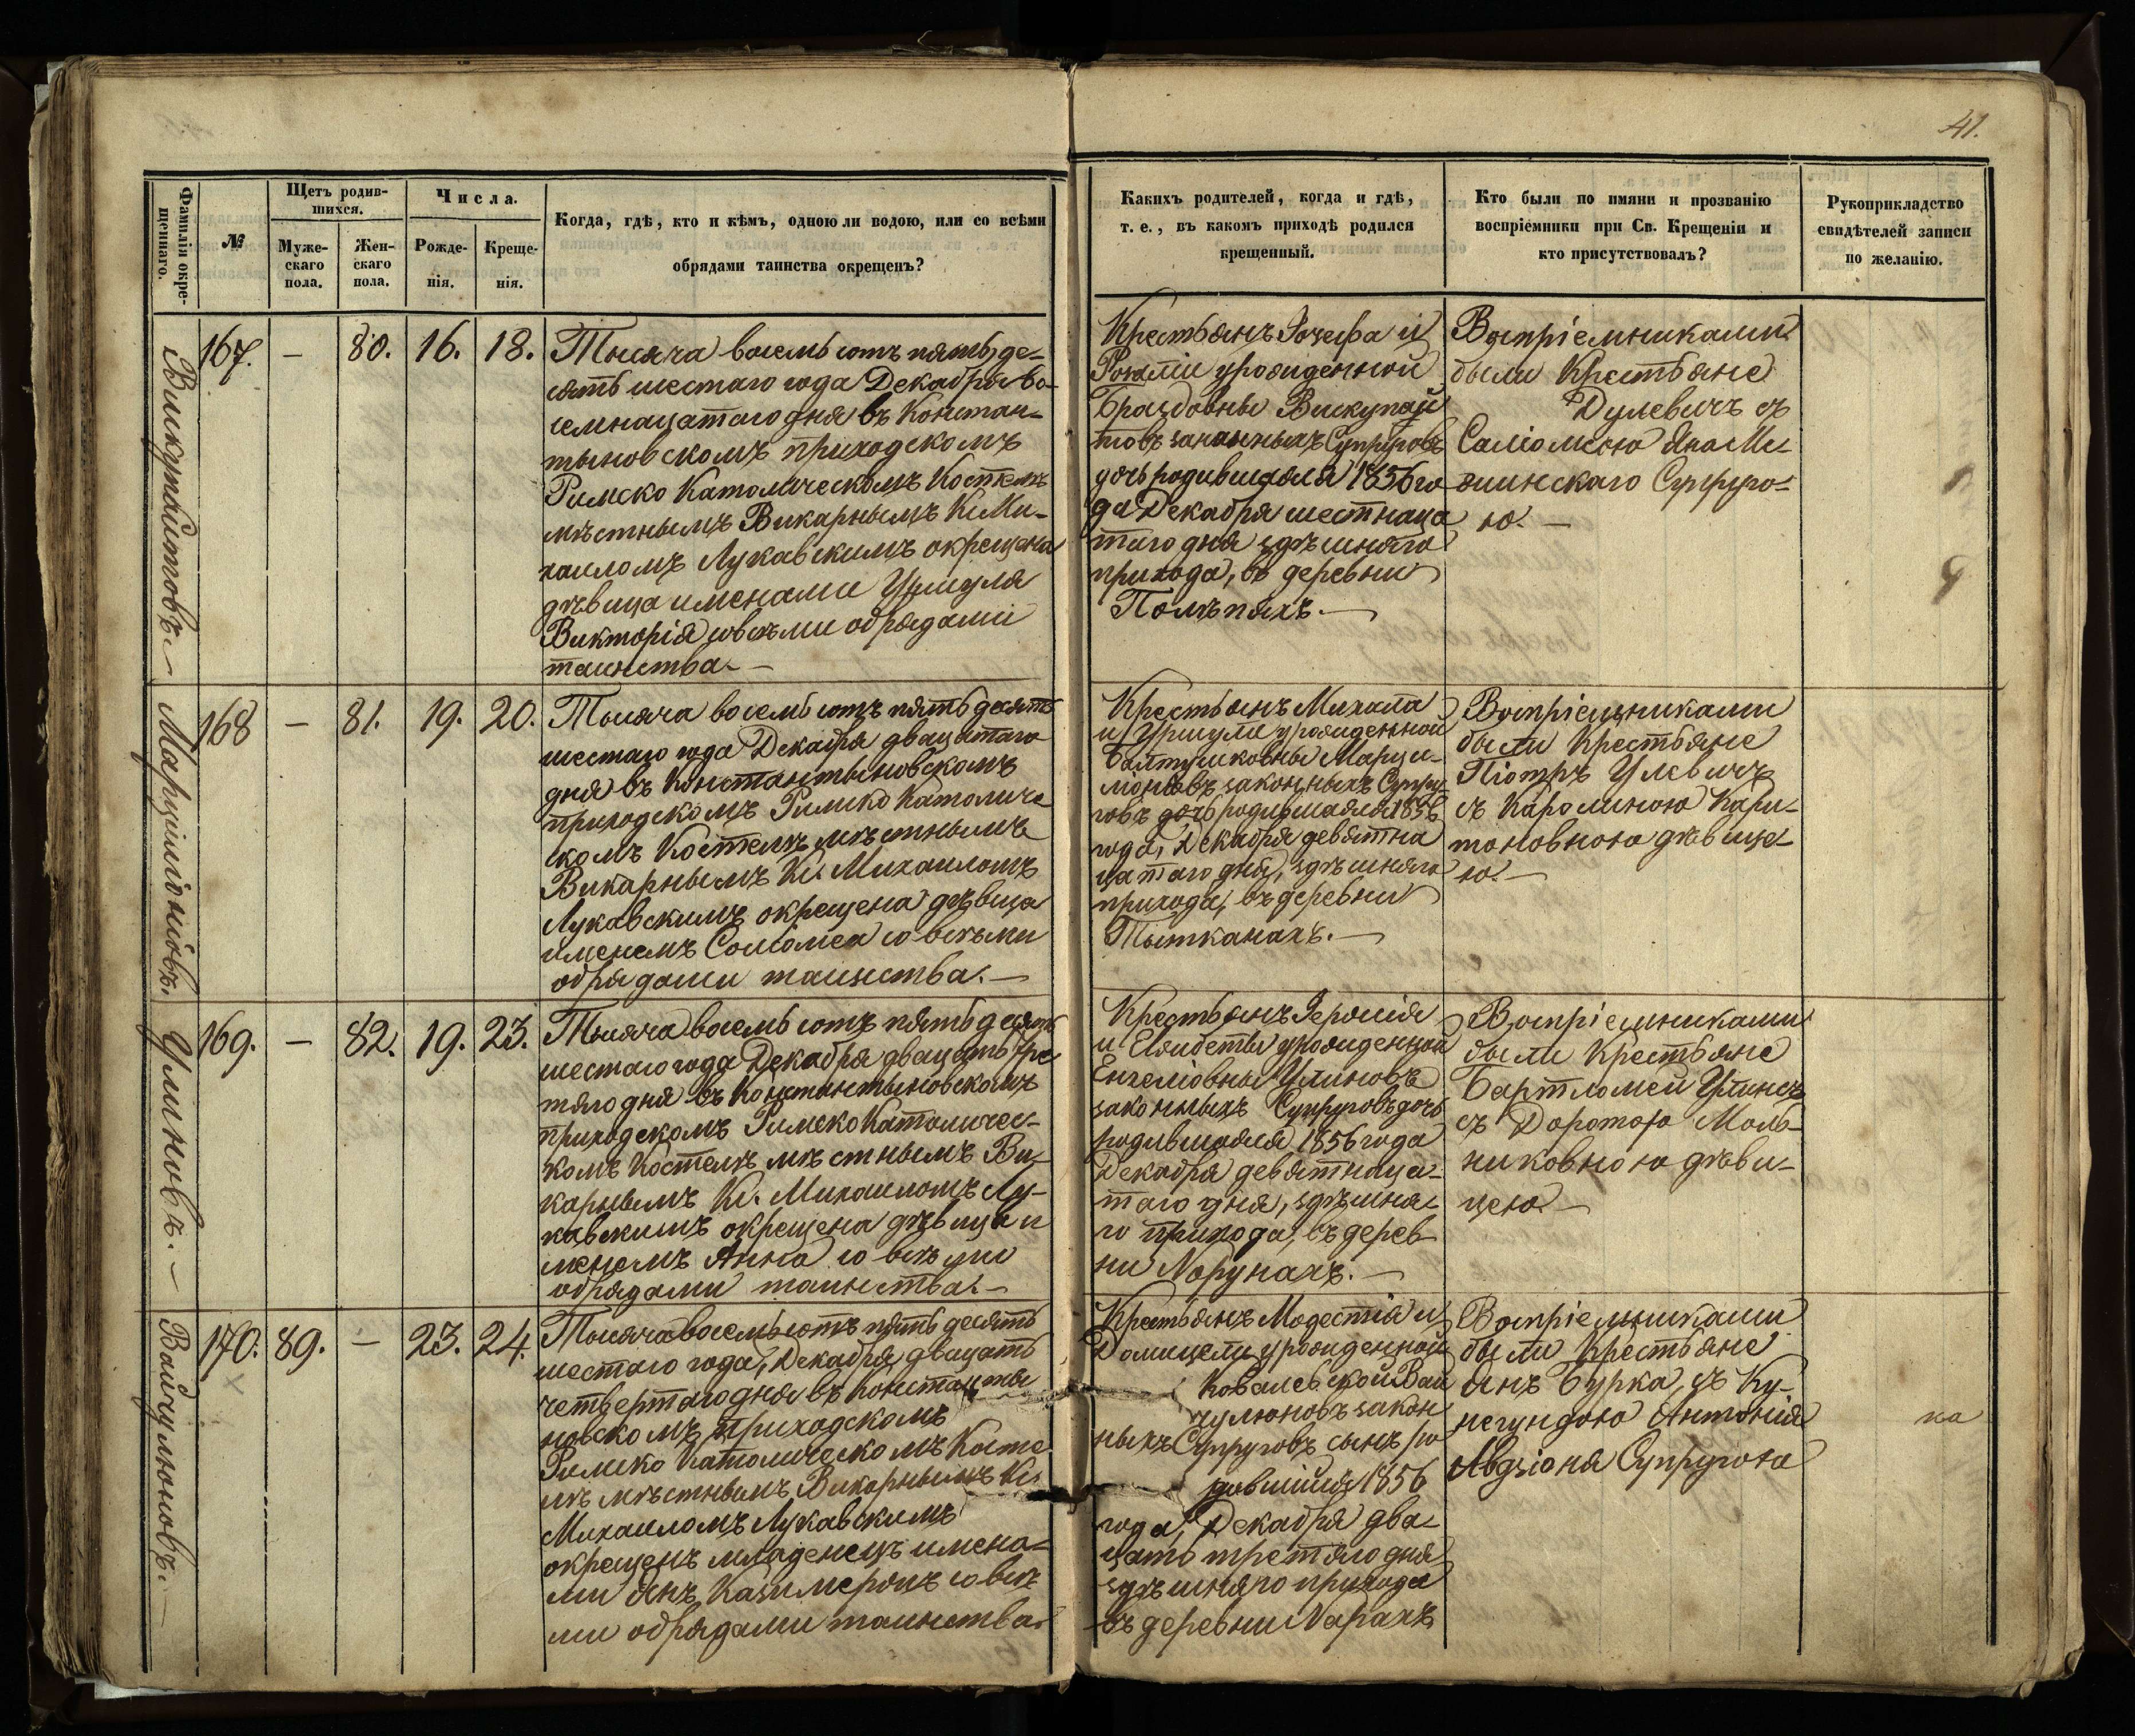 41.
Фамиліи окре-
щеннаго.
№
Щетъ родив-
шихся.
Муже-
скаго
пола.
Жен-
скаго
пола.
Числа.
Рожде-
нія.
Креще-
нія.
Когда, гдѣ, кто и кѣмъ, одною ли водою, или со всѣми
обрядами таинства окрещенъ?
Какихъ родителей, когда и гдѣ,
т. е., въ какомъ приходѣ родился
крещенный.
Кто были по имяни и прозванію
воспріемники при Св. Крещеніи и
кто присутствовалъ?
Рукоприкладство
свидѣтелей записи
по желанію.
167.
—
80.
16.
18.
Тысяча восемьсотъ пятьде-
сять шестаго года Декабря во-
семнацатаго дня въ Констан-
тыновскомъ приходскомъ
Римско Католическомъ Костелѣ
мѣстнымъ Викарнымъ Кс. Ми-
хаиломъ Лукавскимъ окрещена
дѣвица именами Уршуля
Викторія со всѣми обрядами
таинства. —
Крестьянъ Іозефа и
Розаліи урожденной
законныхъ Супруговъ
дочь родившаяся 1856 го
да Декабря шестнаца
таго дня здѣшняго
прихода, въ деревни
Воспріемниками
были Крестьяне
Дулевичъ съ
Саліомеею Яна Ми-
шинскаго Супруго-
ю. —
Марциліоновъ.
168
—
81.
19.
20.
Тысяча восемьсотъ пятьдесять
шестаго года Декабря двацатаго
дня въ Константыновскомъ
приходскомъ Римско Католиче
скомъ Костелѣ мѣстнымъ
Викарнымъ Кс. Михаиломъ
Лукавскимъ окрещена дѣвица
именемъ Соліомея со всѣми
обрядами таинства. —
Крестьянъ Михала
и Уршули урожденной
Балтушковны Марци-
ліоновъ законныхъ Супру-
говъ дочь родившаяся 1856
года, Декабря девятна
цатаго дня, здѣшняго
прихода, въ деревни
Пытканахъ. —
Воспріемниками
были Крестьяне
Піотръ Улевичъ
съ Каролиною Хари-
тоновною дѣвице-
ю. —
Улиновъ. —
169.
—
82.
19.
23.
Тысяча восемьсотъ пятьдесять
шестаго года Декабря двацать тре
тяго дня въ Константыновскомъ
приходскомъ Римско Католичес-
комъ Костелѣ мѣстнымъ Ви-
карнымъ Кс. Михаиломъ Лу-
кавскимъ окрещена дѣвица и
менемъ Анна со всѣми
обрядами таинства. —
Крестьянъ Героніа
и Елжбеты урожденной
Енгеліовны Улиновъ
законныхъ Супруговъ дочь
родившаяся 1856 года
Декабря девятнаца-
таго дня, здѣшня-
го прихода, въ дерев-
ни
Воспріемниками
были Крестьяне
Бартломей Улинъ
съ Доротою Моль-
никовною дѣви-
цею —
Вайчулюновъ. —
170.
89.
—
23.
24.
Тысяча восемьсотъ пятьдесять
шестаго года, Декабря двацать
четвертаго дня въ Константы
новскомъ приходскомъ
Римско Католическомъ Косте
лѣ мѣстнымъ Викарнымъ Кс.
Михаиломъ Лукавскимъ
окрещенъ младенецъ имена-
ми Янъ, Казимеронъ со всѣ
ми обрядами таинства.
Крестьянъ Модестія и
Домицели урожденной
Ковалевской Вай
чулюновъ закон
ныхъ Супруговъ сынъ ро
дившійся 1856
года, Декабря два-
цать третяго дня
здѣшняго прихода
въ деревни
Воспріемниками
были Крестьяне
Янъ Бурка, съ Ку-
негундою Антонія
Авдзіоня Супругою